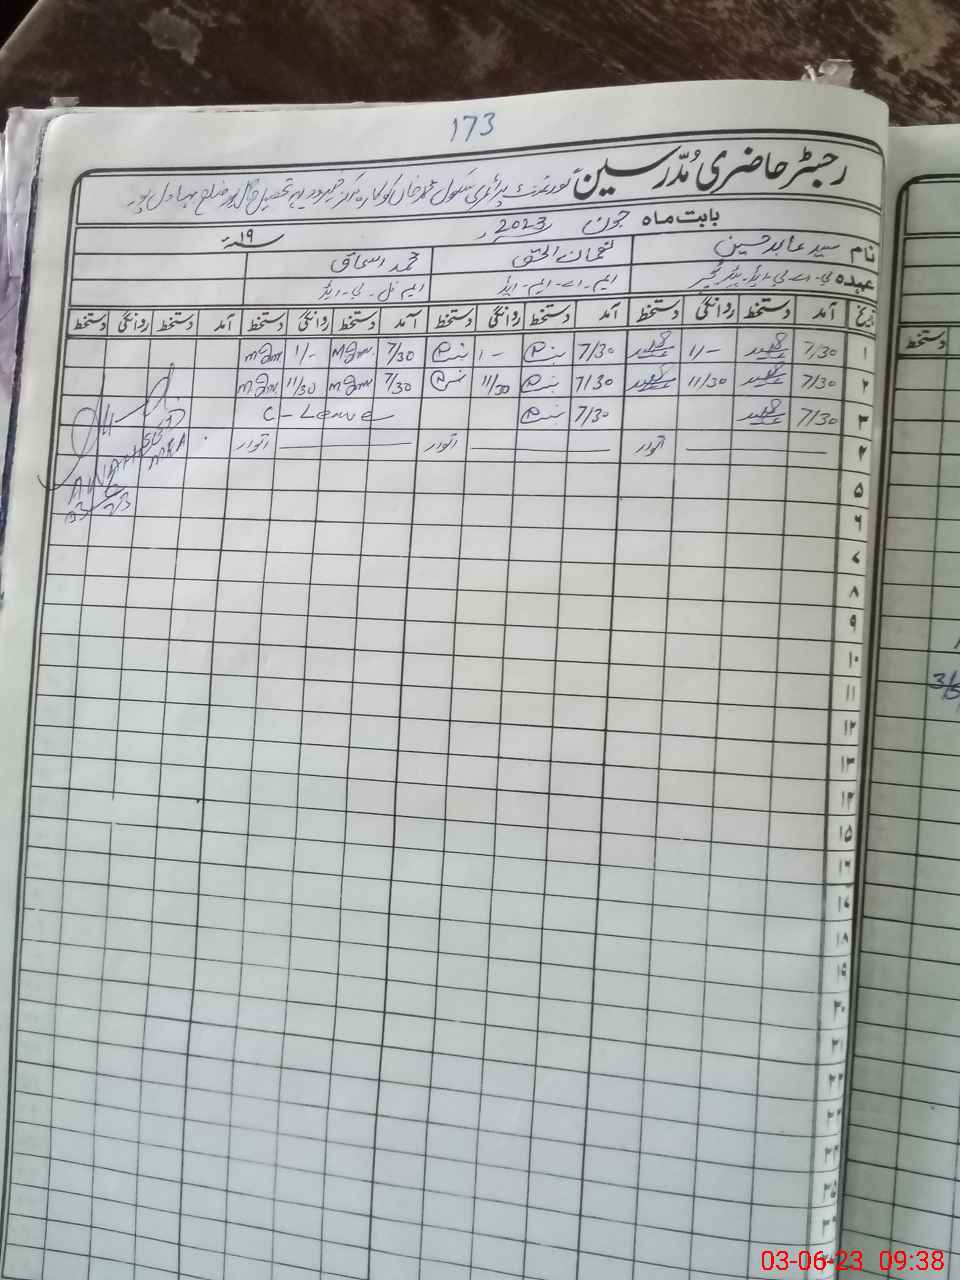 173
رجسٹر حاضری مدرسین گورنمنٹ پرائمری سکول محمد خان ضلع بہاولپور
بابت ماہ جون 2023ء ۱۹ء
نام سید عابد حسین نعمان الحق محمد اسحاق
عہدہ بی-اے-بی-ایڈ ایم-اے-ایم-ایڈ ایم فل-بی-ایڈ
تاریخ آمد دستخط روانگی دستخط آمد دستخط روانگی دستخط آمد دستخط روانگی دستخط آمد دستخط روانگی دستخط
۱ 7/30 1/- 7/30 1- 7/30 1/-
۲ 7/30 11/30 7/30 11/30 7/30 11/30
۳ 7/30 7/30 C-Leave
۴ اتوار اتوار اتوار
۵
۶
۷
۸
۹
۱۰
۱۱
۱۲
۱۳
۱۴
۱۵
۱۶
۱۷
۱۸
۱۹
۲۰
۲۱
۲۲
۲۳
۲۴
۲۵
۲۶
دستخط
03-06-23 09:38